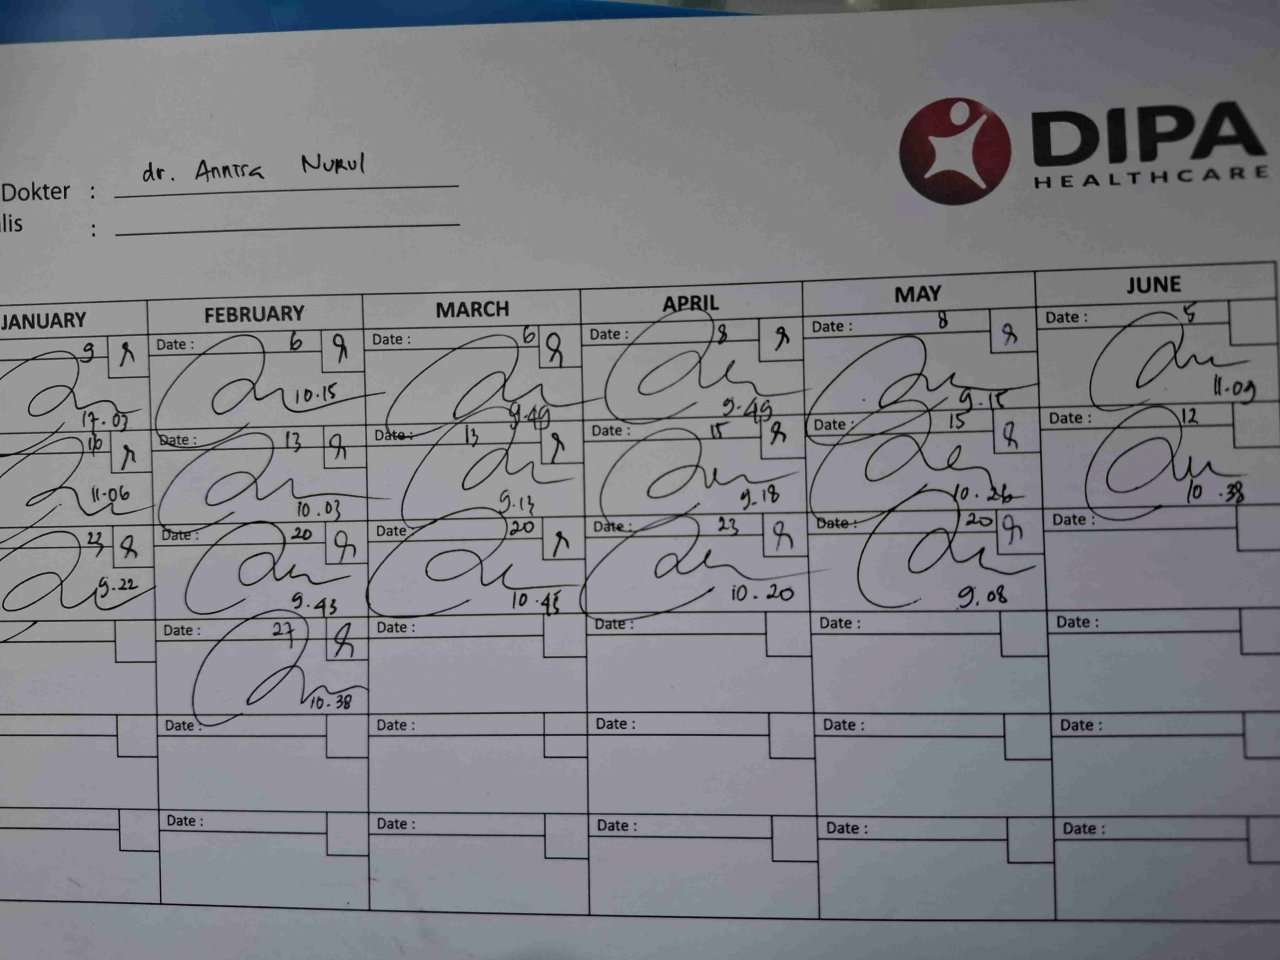 DIPA
HEALTHCARE
Dokter : dr. Annisa Nurul
lis :
JANUARY FEBRUARY MARCH APRIL MAY JUNE
9 Date : 6 Date : 6 Date : 8 Date : 8 Date : 5
17.03 10.15 9.49 9.49 9.15 11.09
16 Date : 13 Date : 13 Date : 15 Date : 15 Date : 12
11.06 10.03 9.13 9.18 10.26 10.38
23 Date : 20 Date : 20 Date : 23 Date : 20 Date :
9.22 9.43 10.45 10.20 9.08
Date : 27 Date : Date : Date : Date :
10.38
Date : Date : Date : Date : Date :
Date : Date : Date : Date : Date :